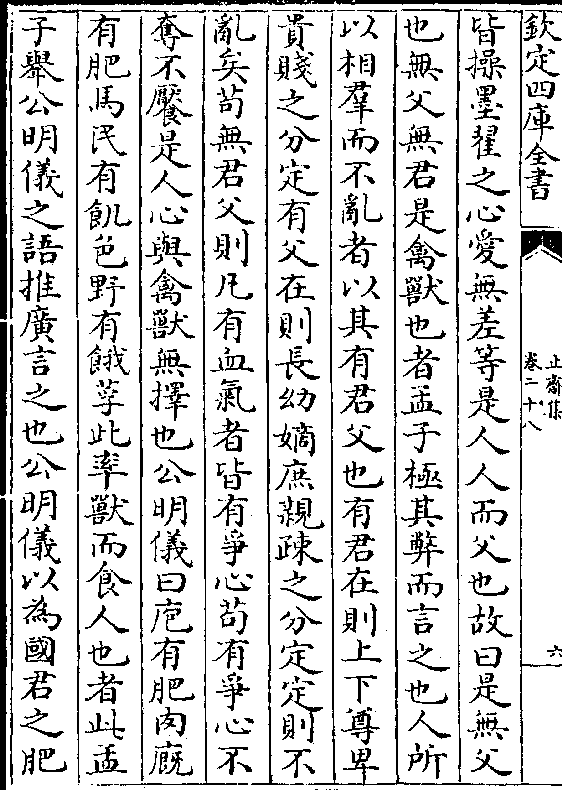 欽定四庫全書
止齋集
卷二十八
六
皆操墨翟之心愛無差等是人人而父也故曰是無父
也無父無君是禽獸也者孟子極其弊而言之也人所
以相羣而不亂者以其有君父也有君在則上下尊卑
貴賤之分定有父在則長幼嫡庶親疎之分定定則不
亂矣苟無君父則凡有血氣者皆有爭心苟有爭心不
奪不饜是人心與禽獸無擇也公明儀曰庖有肥肉廐
有肥馬民有飢色野有餓莩此率獸而食人也者此孟
子舉公明儀之語推廣言之也公明儀以為國君之肥